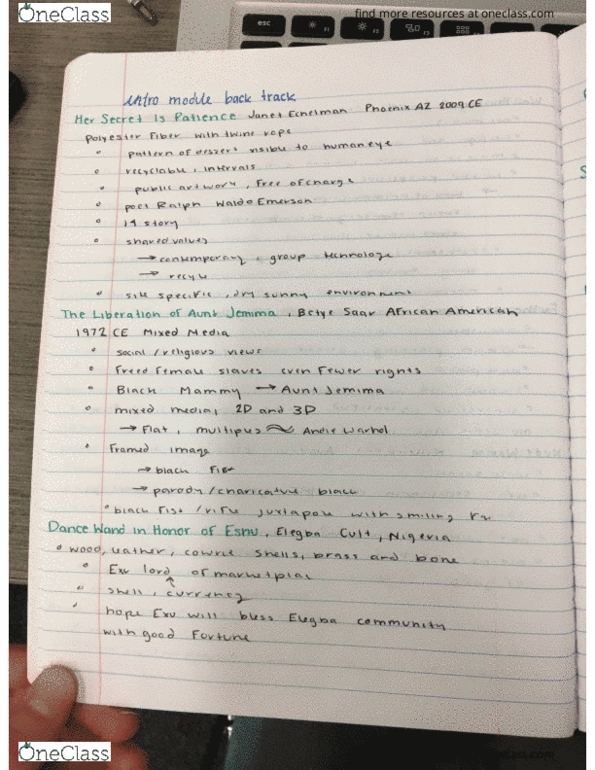 OneClass
find more resources at oneclass.com
esc
F1
F2
F3
intro module back track
Her Secret Is Patience Janet Echelman Phoenix AZ 2009 CE
Polyester Fiber with twine rope
pattern of desert visible to human eye
recyclable, intervals
public artwork, free of charge
poet Ralph Waldo Emerson
14 story
shared values
→ contemporary, group technology
→ recycle
site specific, dry sunny environment
The Liberation of Aunt Jemima, Betye Saar African American
1972 CE Mixed Media
social/religious views
Freed Female slaves even Fewer rights
Black Mammy → Aunt Jemima
mixed media, 2D and 3D
→ Flat, multiples ≈ Andie Warhol
Framed image
→ black fist
→ parody/charicature black
black fist/rifle juxtapose with smiling
Dance Wand in Honor of Eshu, Elegba Cult, Nigeria
wood, leather, cowrie shells, brass and bone
Exu lord of marketplace
shell, currency
hope Exu will bless Elegba community
with good Fortune
OneClass
oneclass.com